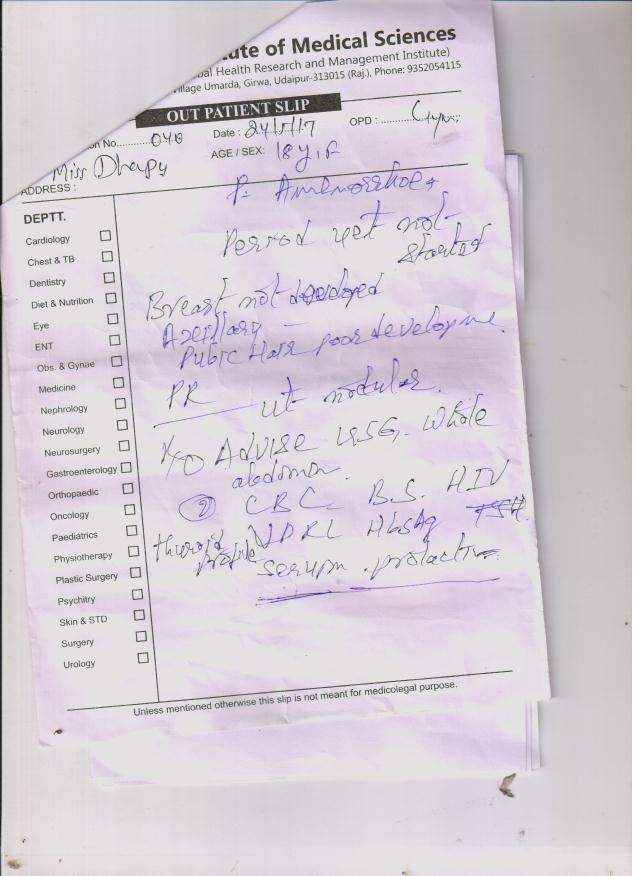 ute of Medical Sciences
bal Health Research and Management Institute)
illage Umarda, Girwa, Udaipur-313015 (Raj.), Phone: 9352054115
OUT PATIENT SLIP
on No............ Date : 24/5/17 OPD : ..........
Miss Dhapy AGE / SEX: 18 y, F
ADDRESS :
P: Amenorrhoea
Period yet not
started
Breast not developed
Axcillary -
Pubic Hair poor developme.
PR ut nodular.
Advise USG. Whole
abdomen.
② CBC B.S. HIV
VDRL HbsAg TSH
thyroid
profile
serum prolactin
DEPTT.
Cardiology
Chest & TB
Dentistry
Diet & Nutrition
Eye
ENT
Obs. & Gynae
Medicine
Nephrology
Neurology
Neurosurgery
Gastroenterology
Orthopaedic
Oncology
Paediatrics
Physiotherapy
Plastic Surgery
Psychitry
Skin & STD
Surgery
Urology
Unless mentioned otherwise this slip is not meant for medicolegal purpose.